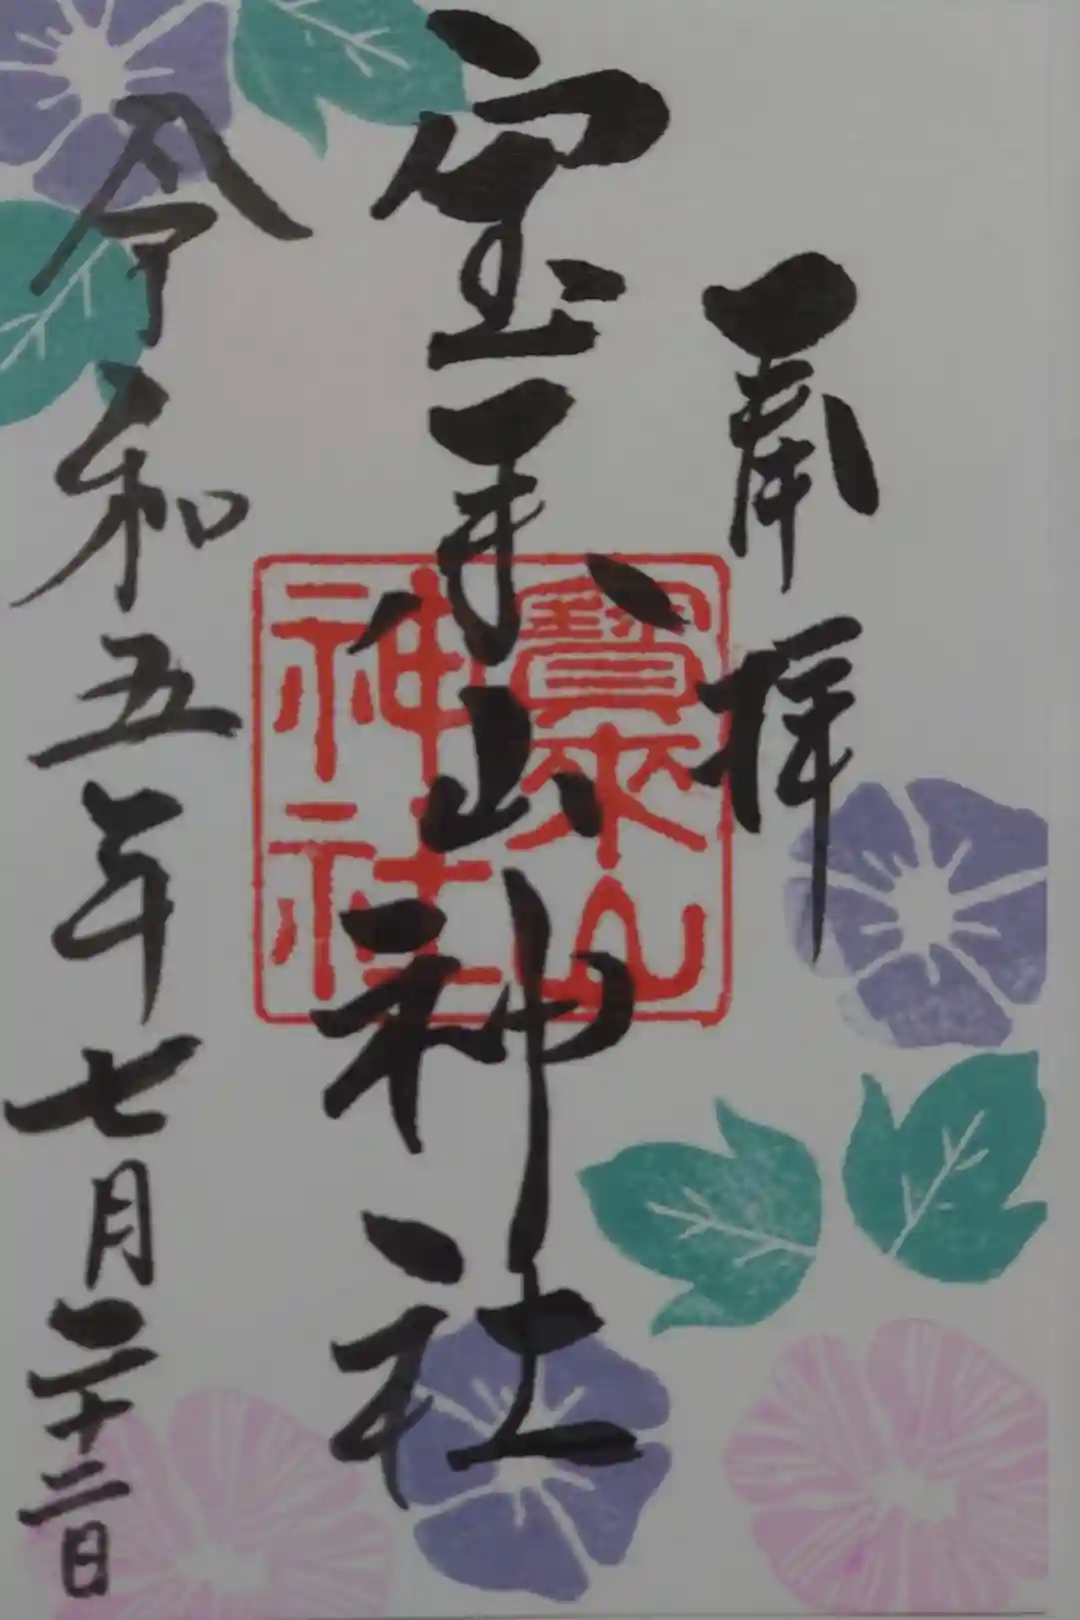 奉拝
宝来山神社
寳來山
神社
令和五年七月二十二日